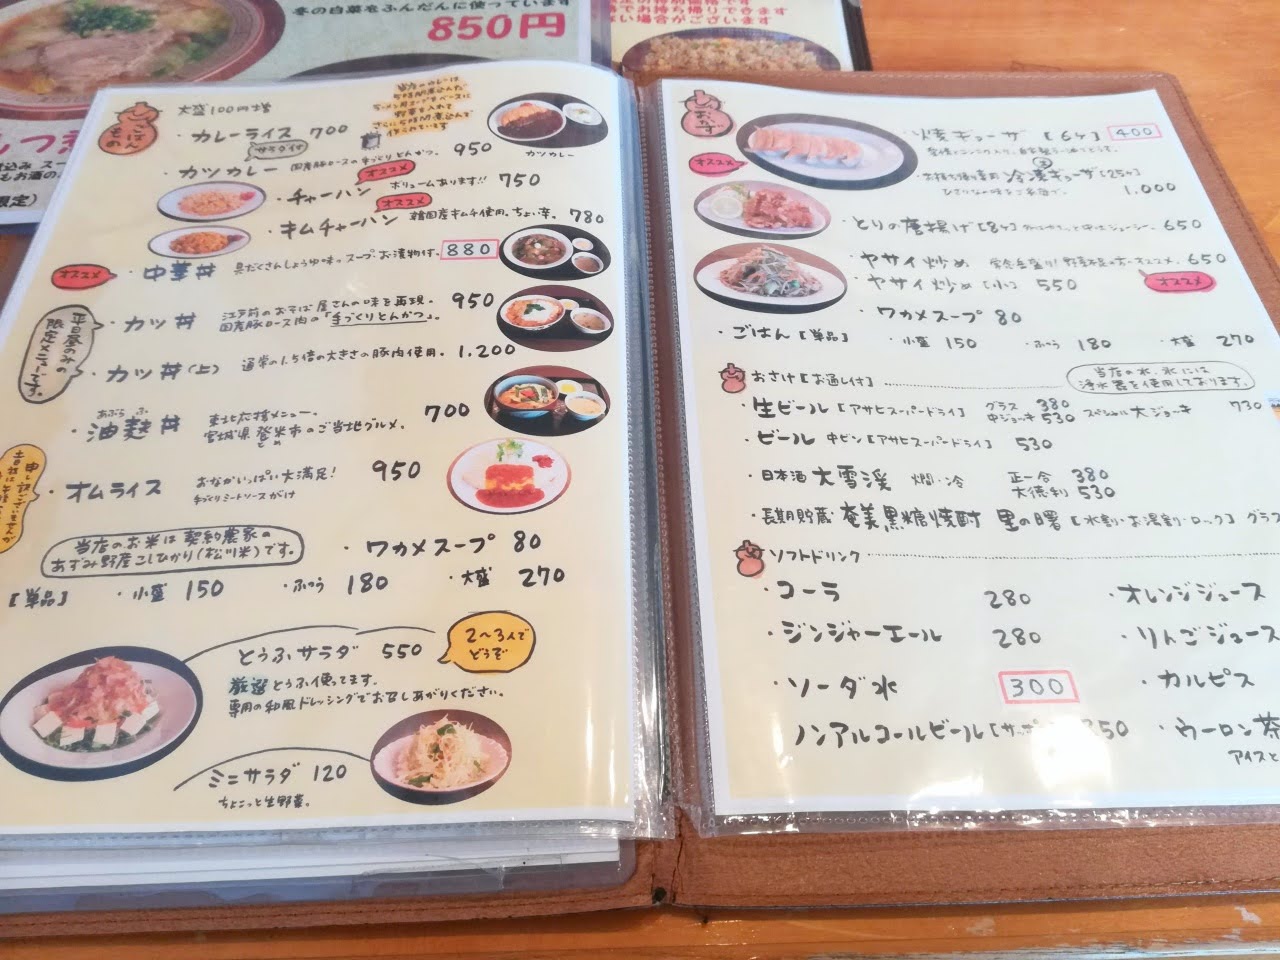 冬の白菜をふんだんに使っています
850円
でお持ち帰りできます
い場合がございます
もお酒の
限定)
ごはんもの
大盛100円増
・カレーライス 700
サラダ付
・カツカレー 国産豚ロースの手づくりとんかつ。 950
カツカレー
オススメ
・チャーハン ボリュームあります!! 750
オススメ
・キムチャーハン 韓国産キムチ使用。ちょい辛。 780
オススメ
・中華丼 具だくさんしょうゆ味。スープ・お漬物付。 880
平日昼のみの限定メニューです。
・カツ丼 江戸前のおそば屋さんの味を再現。 950
国産豚ロース肉の「手づくりとんかつ」。
・カツ丼(上) 通常の1.5倍の大きさの豚肉使用。 1,200
あぶら ふ
・油麩丼 東北応援メニュー。 700
宮城県 登米市のご当地グルメ。
とめ
・オムライス おなかいっぱい大満足! 950
手づくりミートソースがけ
当店のお米は契約農家の
あずみ野産こしひかり(松川米)です。
・ワカメスープ 80
[単品] ・小盛 150 ・ふつう 180 ・大盛 270
とうふサラダ 550
2〜3人で
どうぞ
厳選とうふ使ってます。
専用の和風ドレッシングでお召しあがりください。
ミニサラダ 120
ちょこっと生野菜。
おかず
・焼ギョーザ [6ケ] 400
オススメ
冷凍ギョーザ [25ケ]
1.000
・とりの唐揚げ [8ケ] 650
・ヤサイ炒め 650
・ヤサイ炒め [小] 550
オススメ
・ワカメスープ 80
・ごはん [単品] ・小盛 150 ・ふつう 180 ・大盛 270
おさけ [お通し付]
当店の水、氷には
浄水器を使用しております。
・生ビール [アサヒスーパードライ] グラス 380
中ジョーキ 530 スペシャル大ジョーキ 730
・ビール 中ビン [アサヒスーパードライ] 530
・日本酒 大雪渓 燗・冷 正一合 380
大徳利 530
・長期貯蔵 奄美黒糖焼酎 里の曙 [水割・お湯割・ロック] グラ
ソフトドリンク
・コーラ 280
・オレンジジュース
・ジンジャーエール 280
・りんごジュース
・ソーダ水 300
・カルピス
ノンアルコールビール 350
・ウーロン茶
アイスと